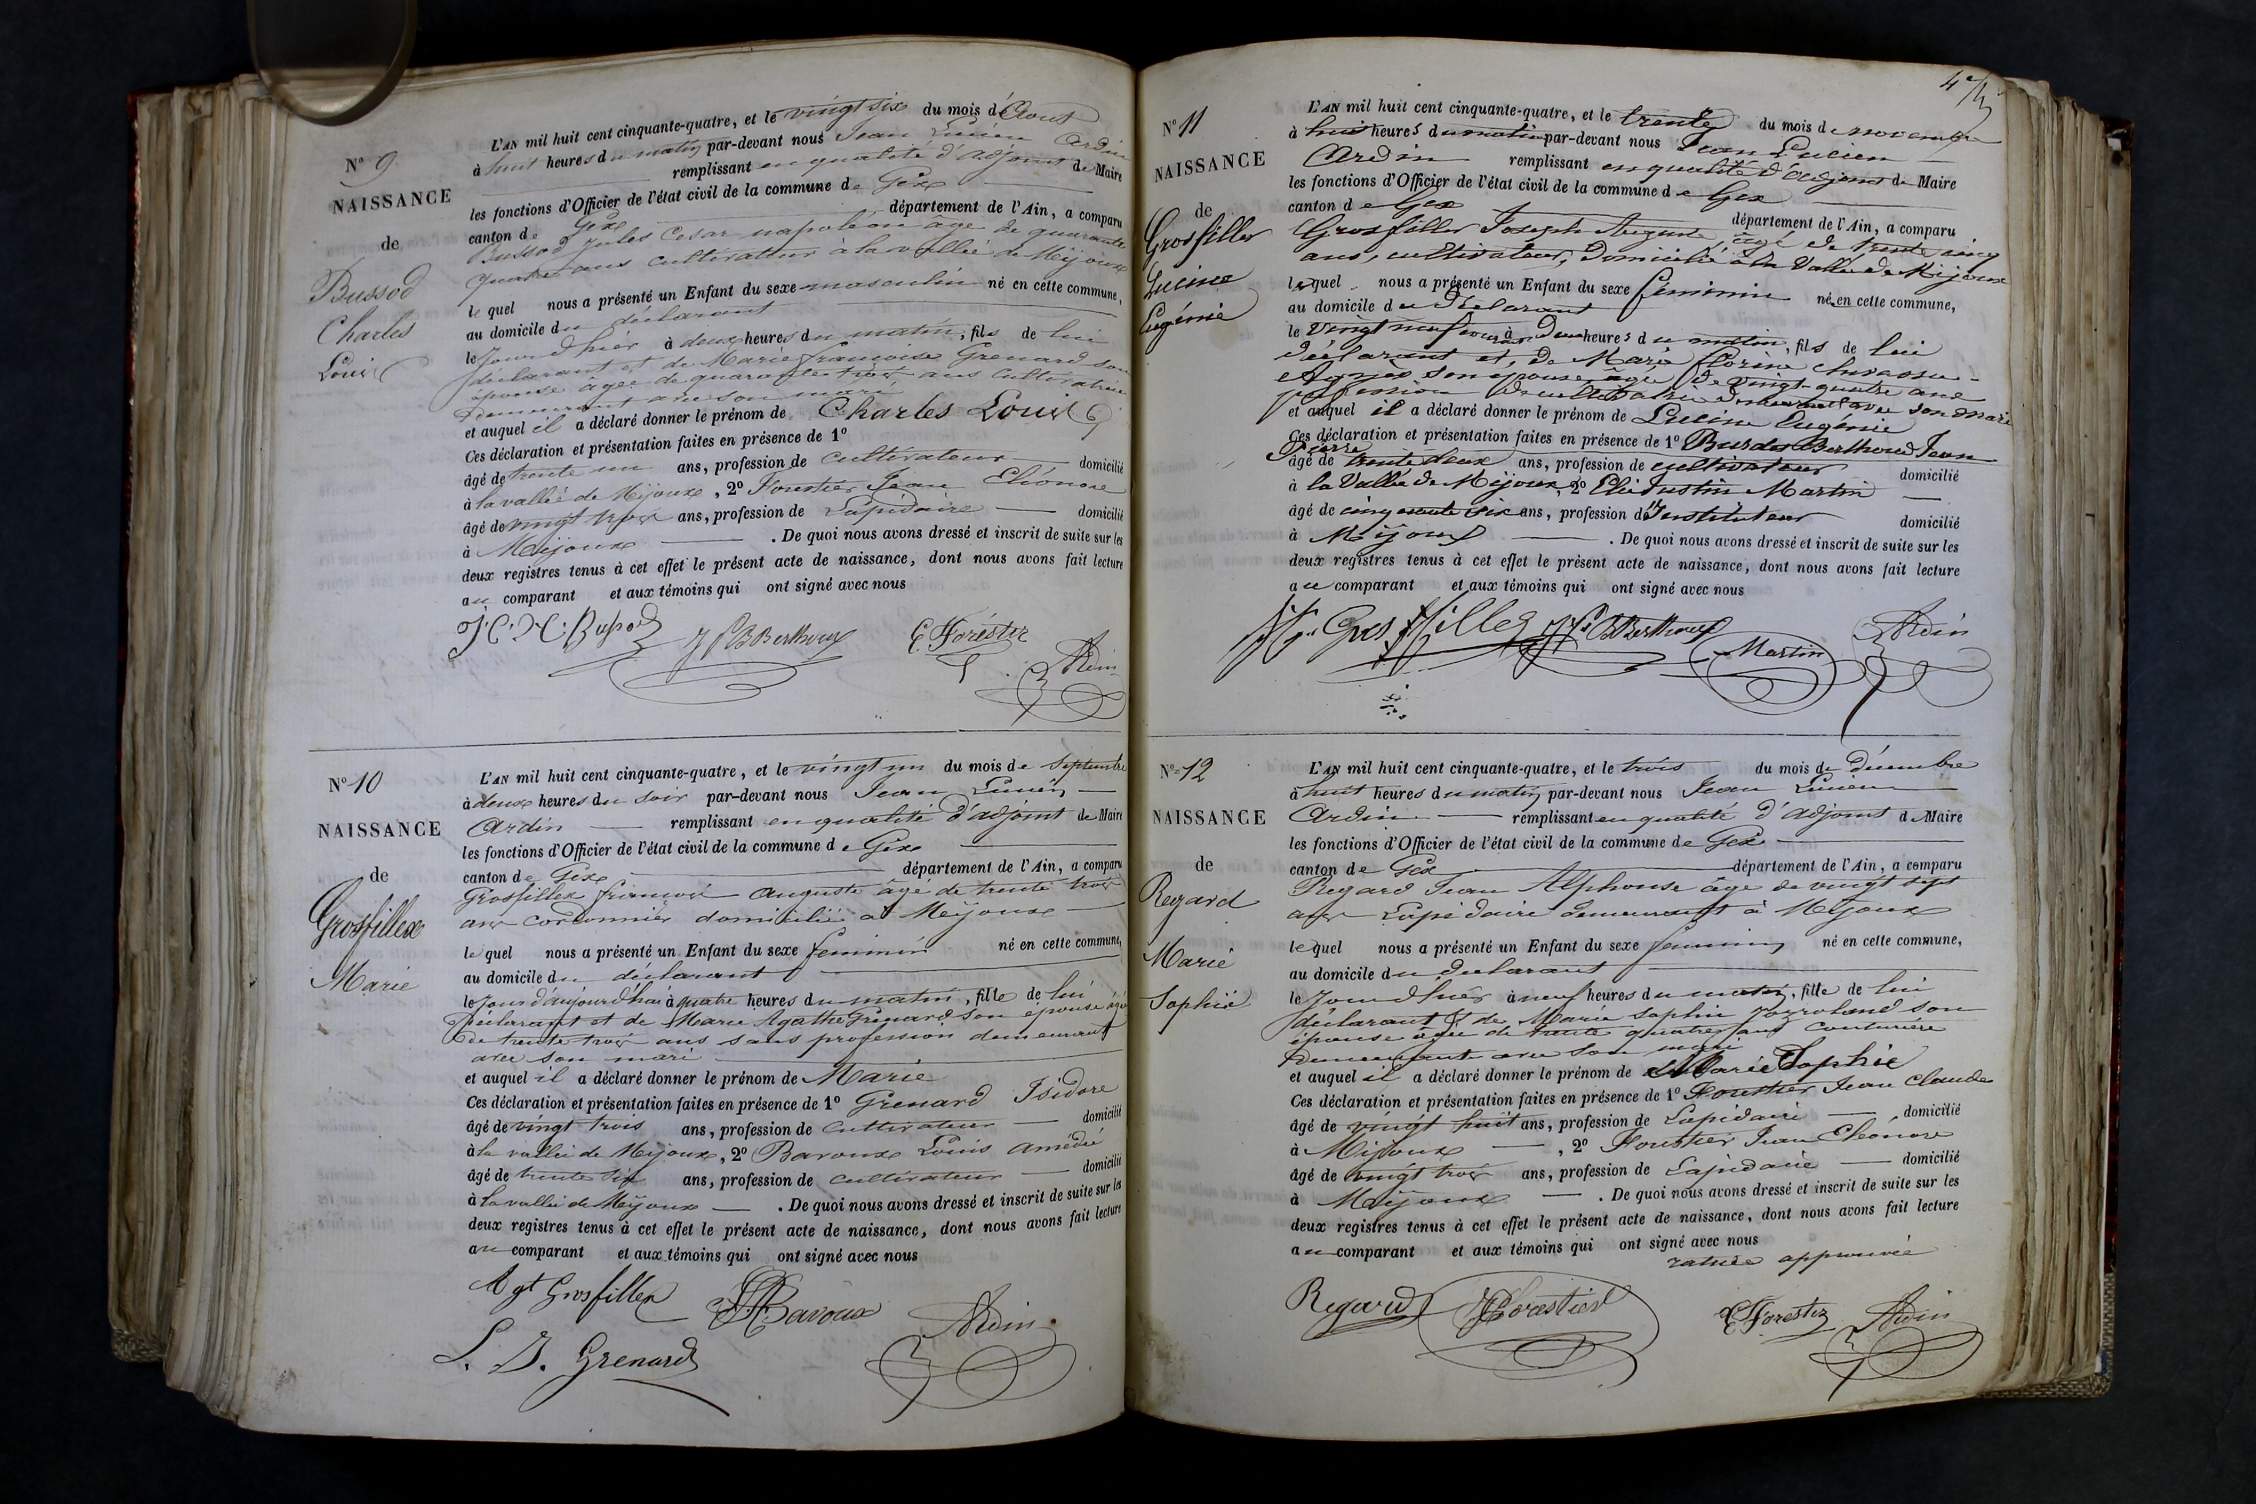 N° 9
NAISSANCE
de
Bussod
Charles
Louis
L'AN mil huit cent cinquante-quatre, et le vingt six du mois d'Aout
à huit heures du matin par-devant nous Jean Lucien Ardin
remplissant en qualité d'adjoint de Maire
les fonctions d'Officier de l'état civil de la commune de Gex
canton de Gex département de l'Ain, a comparu
Bussod Jules Cesar napoléon âgé de quarante
quatre ans cultivateur à la vallée de Mijoux
le quel nous a présenté un Enfant du sexe masculin né en cette commune,
au domicile du déclarant
le jour d'hier à deux heures du matin, fils de lui
déclarant et de Marie françoise Grenard son
épouse âgée de quarante trois ans cultivatrice
demeurant avec son mari
et auquel il a déclaré donner le prénom de Charles Louis
Ces déclaration et présentation faites en présence de 1°
âgé de trente un ans, profession de cultivateur domicilié
à la vallée de Mijoux, 2° Forestier Jean Eléonore
âgé de vingt trois ans, profession de Lapidaire domicilié
à Mijoux . De quoi nous avons dressé et inscrit de suite sur les
deux registres tenus à cet effet le présent acte de naissance, dont nous avons fait lecture
au comparant et aux témoins qui ont signé avec nous
J. C. N. Bussod J P B Berthoux E Forestier
Ardin
N° 10
NAISSANCE
de
Grosfillex
Marie
L'AN mil huit cent cinquante-quatre, et le vingt un du mois de septembre
à deux heures du soir par-devant nous Jean Lucien
Ardin remplissant en qualité d'adjoint de Maire
les fonctions d'Officier de l'état civil de la commune de Gex
canton de Gex département de l'Ain, a comparu
Grosfillex françois auguste âgé de trente trois
ans cordonnier domicilié à Mijoux
le quel nous a présenté un Enfant du sexe feminin né en cette commune,
au domicile du déclarant
le jour d'aujourd'hui à quatre heures du matin, fille de lui
déclarant et de Marie Agathe Grenard son épouse âgée
de trente trois ans sans profession demeurant
avec son mari
et auquel il a déclaré donner le prénom de Marie
Ces déclaration et présentation faites en présence de 1° Grenard Isidore
âgé de vingt trois ans, profession de cultivateur domicilié
à la vallée de Mijoux, 2° Baroux Louis amédié
âgé de trente six ans, profession de cultivateur domicilié
à la vallée de Mijoux . De quoi nous avons dressé et inscrit de suite sur les
deux registres tenus à cet effet le présent acte de naissance, dont nous avons fait lecture
au comparant et aux témoins qui ont signé avec nous
Agt Grosfillex Baroux Ardin
L. J. Grenard
N° 11
NAISSANCE
de
Grosfiller
Lucine
Eugénie
L'AN mil huit cent cinquante-quatre, et le trente du mois de novembre
à huit heures du matin par-devant nous Jean Lucien
Ardin remplissant en qualité d'adjoint de Maire
les fonctions d'Officier de l'état civil de la commune de Gex
canton de Gex département de l'Ain, a comparu
Grosfiller Joseph Auguste âgé de trente cinq
ans, cultivateur, domicilié à la Vallée de Mijoux
le quel nous a présenté un Enfant du sexe féminin né en cette commune,
au domicile du déclarant
le vingt neuf à deux heures du matin, fils de lui
déclarant et, de Marie florine
son épouse âgée de vingt quatre ans
profession de cultivatrice demeurant avec son mari
et auquel il a déclaré donner le prénom de Lucine Eugénie
Ces déclaration et présentation faites en présence de 1° Burdet Berthoud Jean
Pierre
âgé de trente deux ans, profession de cultivateur domicilié
à la Vallée de Mijoux, 2° Elie Justin Martin
âgé de cinquante six ans, profession d'Instituteur domicilié
à Mijoux . De quoi nous avons dressé et inscrit de suite sur les
deux registres tenus à cet effet le présent acte de naissance, dont nous avons fait lecture
au comparant et aux témoins qui ont signé avec nous
Gros filler J P B Berthoux Martin Ardin
N° 12
NAISSANCE
de
Regard
Marie
Sophie
L'AN mil huit cent cinquante-quatre, et le trois du mois de décembre
à huit heures du matin par-devant nous Jean Lucien
Ardin remplissant en qualité d'adjoint de Maire
les fonctions d'Officier de l'état civil de la commune de Gex
canton de Gex département de l'Ain, a comparu
Regard Jean Alphonse âgé de vingt sept
ans Lapidaire demeurant à Mijoux
le quel nous a présenté un Enfant du sexe feminin né en cette commune,
au domicile du déclarant
le jour d'hier à neuf heures du matin, fille de lui
déclarant et de Marie sophie son
épouse âgée de trente quatre ans couturière
demeurante avec son mari
et auquel il a déclaré donner le prénom de Marie Sophie
Ces déclaration et présentation faites en présence de 1° Forestier Jean Claude
âgé de vingt huit ans, profession de Lapidaire domicilié
à Mijoux, 2° Forestier Jean Eléonore
âgé de vingt trois ans, profession de Lapidaire domicilié
à Mijoux . De quoi nous avons dressé et inscrit de suite sur les
deux registres tenus à cet effet le présent acte de naissance, dont nous avons fait lecture
au comparant et aux témoins qui ont signé avec nous
rature approuvée
Regard Forestier E Forestier Ardin